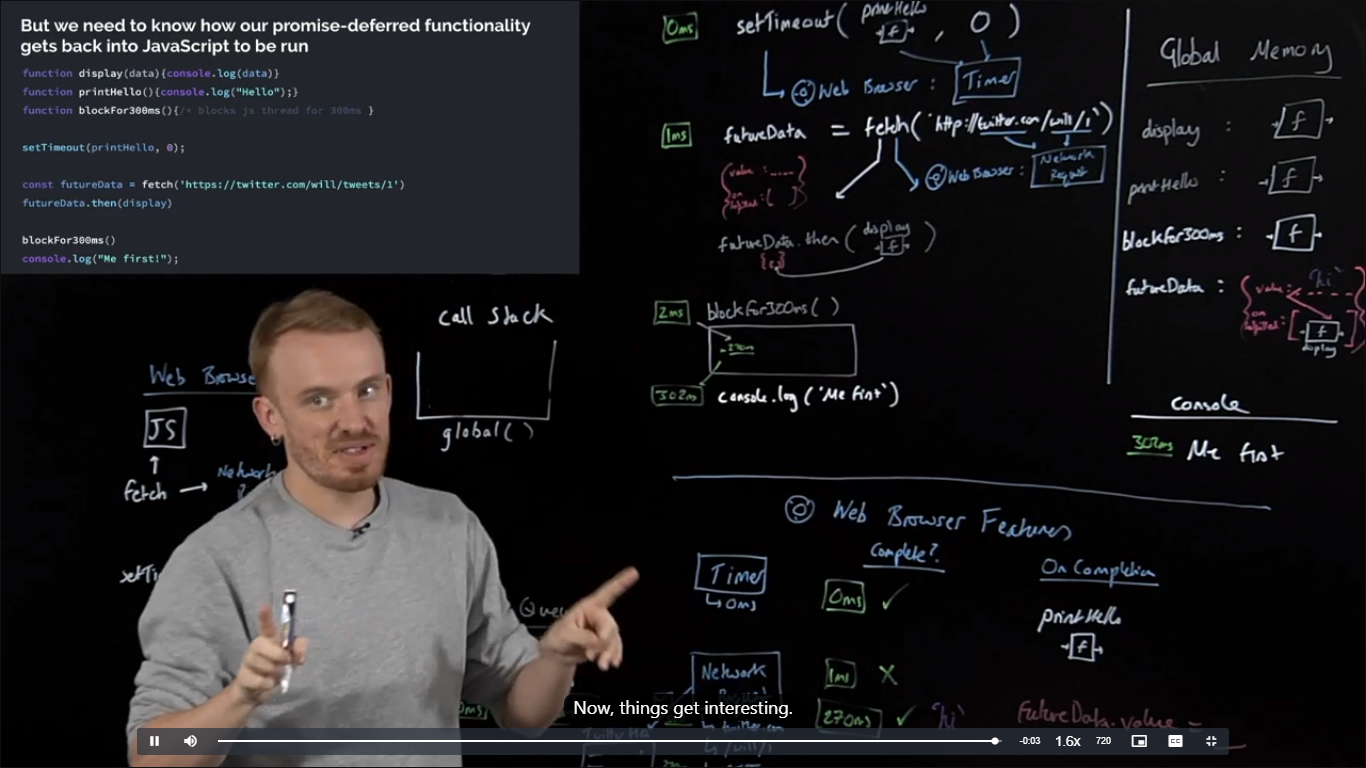 But we need to know how our promise-deferred functionality
gets back into JavaScript to be run
function display(data){console.log(data)}
function printHello(){console.log("Hello");}
function blockFor300ms(){/* blocks js thread for 300ms }
setTimeout(printHello, 0);
const futureData = fetch('https://twitter.com/will/tweets/1')
futureData.then(display)
blockFor300ms()
console.log("Me first!");
0ms
setTimeout( printHello f , 0 )
Web Browser : Timer
1ms
futureData = fetch('http://twitter.com/will/1')
{ value : .....
on fulfilled : [ ] }
Web Browser : Network Request
futureData.then ( display f )
2ms
blockfor300ms ( )
270m
302m
console.log ('Me first')
Global Memory
display : f
printHello : f
blockfor300ms : f
futureData : { value : ..... 'hi'
on fulfilled : [ f ] }
display
Console
302ms Me first
call stack
global( )
Web Browse
JS
fetch → Network
setTi
Queu
Web Browser Features
Complete?
On Completion
Timer
0ms
0ms ✓
printHello
f
Network
1ms X
270ms ✓ 'hi'
FutureData.value =
twitter.com
/will/1
Now, things get interesting.
-0:03
1.6x
720
CC